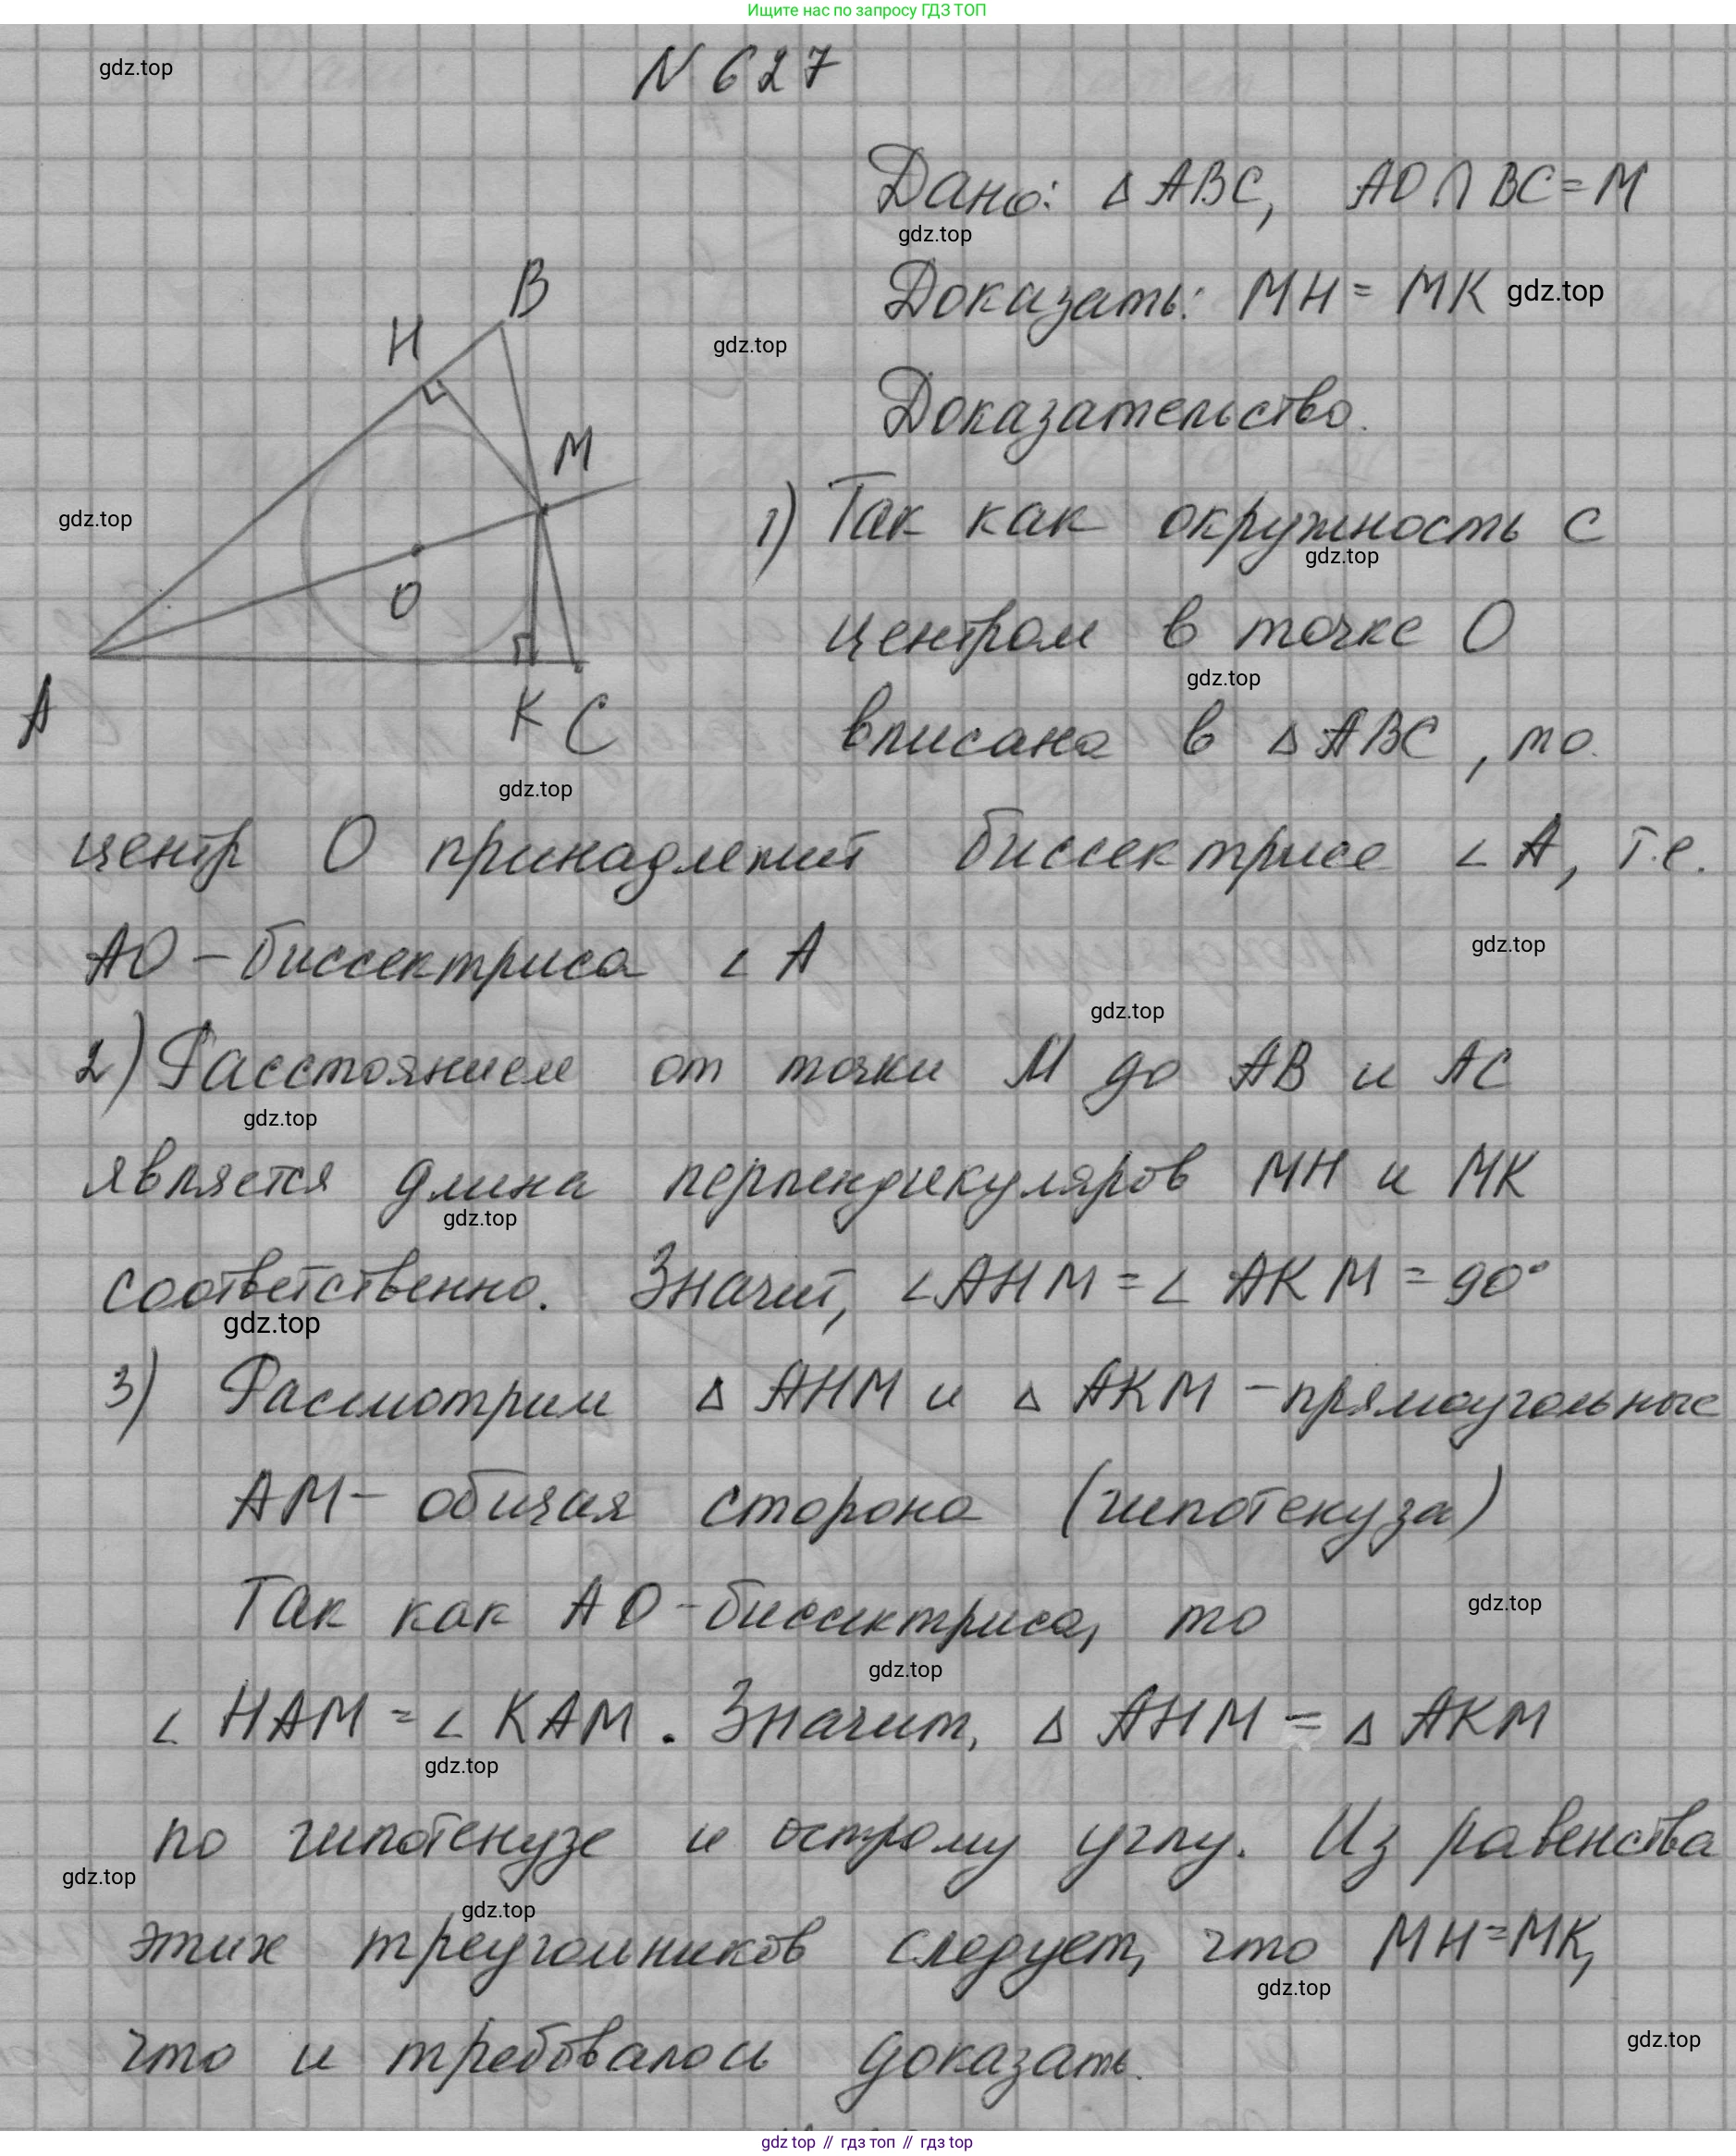 Ищите нас по запросу ГДЗ ТОП
gdz.top
N 627
Дано: △ ABC, AO ∩ BC = M
gdz.top
Доказать: MH = MK gdz.top
B
H
gdz.top
Доказательство.
M
gdz.top
1) Так как окружность с
gdz.top
O
центром в точке O
gdz.top
A
K C
вписана в △ ABC, то
gdz.top
центр O принадлежит биссектрисе ∠ A, т.е.
AO – биссектриса ∠ A
gdz.top
gdz.top
2) Расстоянием от точки M до AB и AC
gdz.top
является длина перпендикуляров MH и MK
gdz.top
соответственно. Значит, ∠AHM = ∠ AKM = 90°
gdz.top
3) Рассмотрим △ AHM и △ AKM – прямоугольные
AM – общая сторона (гипотенуза)
Так как AO – биссектриса, то
gdz.top
gdz.top
∠ HAM = ∠ KAM. Значит, △ AHM = △ AKM
gdz.top
по гипотенузе и острому углу. Из равенства
gdz.top
gdz.top
этих треугольников следует, что MH = MK,
gdz.top
что и требовалось доказать.
gdz.top
gdz top // гдз топ // гдз top